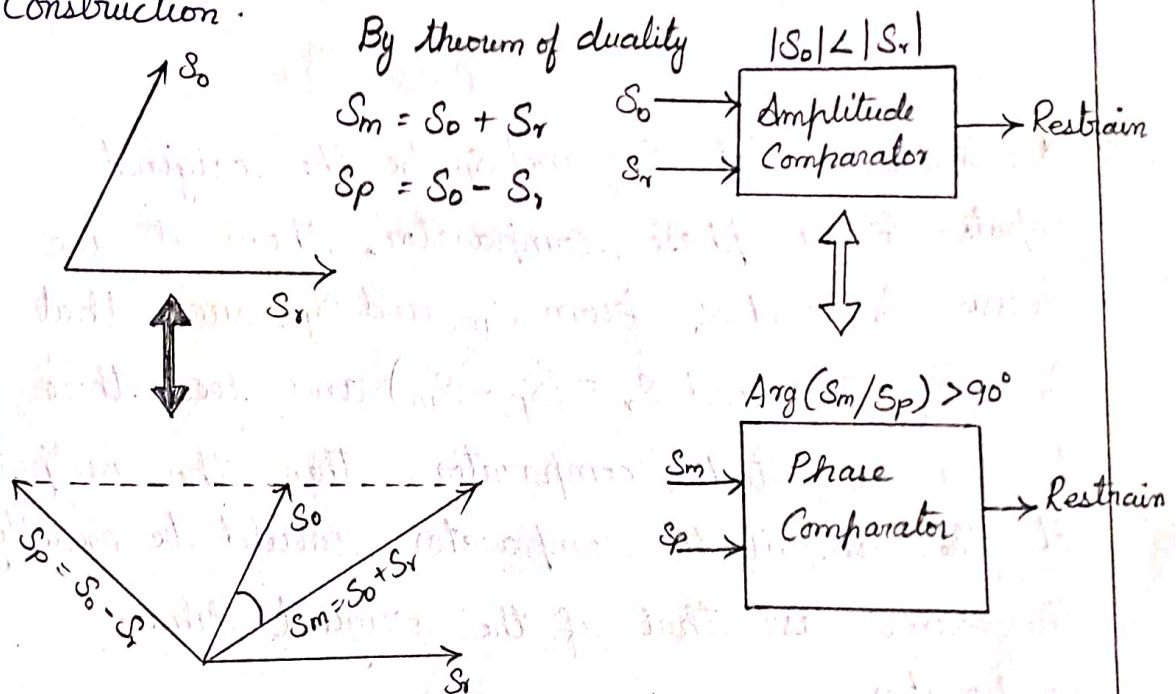 Construction.
By theorum of duality
Sm = So + Sr
Sp = So - Sr
So
Sr
|So| < |Sr|
So
Sr
Amplitude
Comparator
Restrain
Arg (Sm/Sp) > 90°
Sm
Sp
Phase
Comparator
Restrain
So
Sp = So - Sr
Sm = So + Sr
Sr